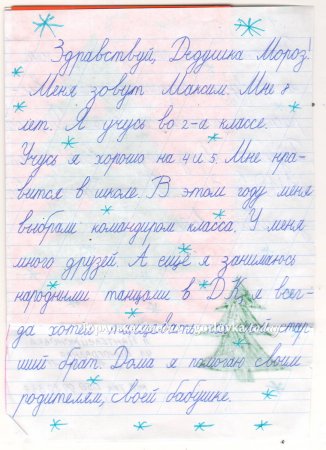 Здравствуй, Дедушка Мороз!
Меня зовут Максим. Мне 8
лет. Я учусь во 2-а классе.
Учусь я хорошо на 4 и 5. Мне нра-
вится в школе. В этом году меня
выбрали командиром класса. У меня
много друзей. А ещё я занимаюсь
народными танцами в ДК, я всег-
да хотел танцевать, стар-
ший брат. Дома я помогаю своим
родителям, своей бабушке.